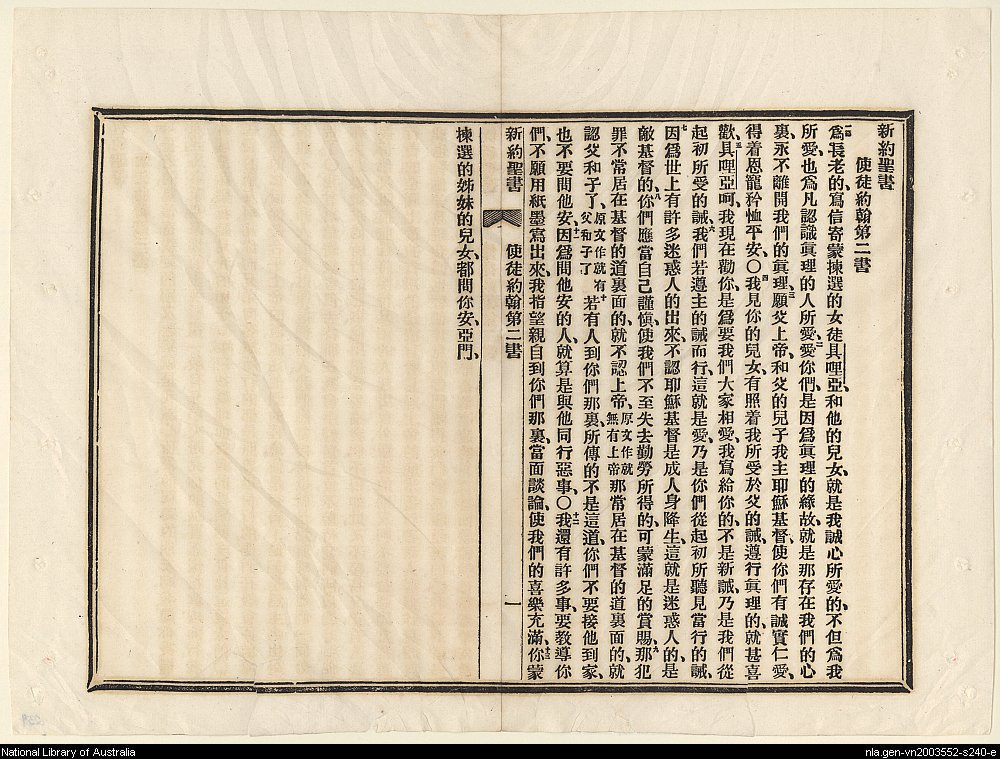 新約聖書
使徒約翰第二書
一爲長老的、寫信寄蒙揀選的女徒具哩亞、和他的兒女、就是我誠心所愛的、不但爲我
所愛、也爲凡認識眞理的人所愛、二愛你們、是因爲眞理的緣故、就是那存在我們的心
裏、永不離開我們的眞理、三願父上帝、和父的兒子我主耶穌基督、使你們有誠實仁愛、
得着恩寵矜恤平安〇四我見你的兒女、有照着我所受於父的誡、遵行眞理的、就甚喜
歡、五具哩亞呵、我現在勸你、是爲要我們大家相愛、我寫給你的、不是新誡、乃是我們從
起初所受的誡、六我們若遵主的誡而行、這就是愛、乃是你們從起初所聽見當行的誡、
七因爲世上有許多迷惑人的出來、不認耶穌基督是成人身降生、這就是迷惑人的、是
敵基督的、八你們應當自己謹愼、使我們不至失去勤勞所得的、可蒙滿足的賞賜、九那犯
罪不常居在基督的道裏面的、就不認上帝、原文作就無有上帝那常居在基督的道裏面的、就
認父和子了、原文作就有父和子了十若有人到你們那裏、所傳的不是這道、你們不要接他到家、
也不要問他安、十一因爲問他安的人、就算是與他同行惡事、〇十二我還有許多事、要教導你
們、不願用紙墨寫出來、我指望親自到你們那裏、當面談論、使我們的喜樂充滿、十三你蒙
新約聖書 使徒約翰第二書 一
揀選的姊妹的兒女、都問你安、亞門、
National Library of Australia
nla.gen-vn2003552-s240-e